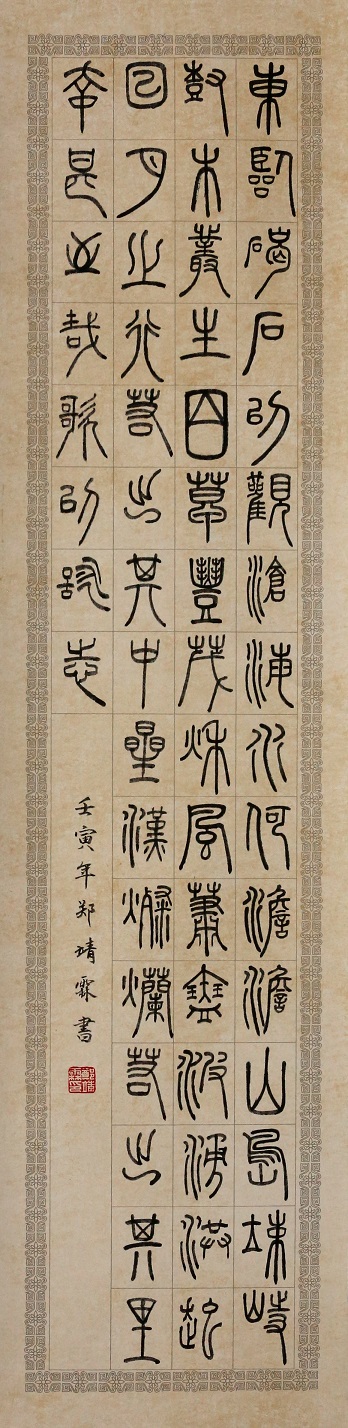 東臨碣石以觀滄海水何澹澹山島竦峙
尌木叢生百草豐茂秋風蕭瑟波涌洪起
日月之行若出其中星漢燦爛若出其里
幸甚至哉歌以詠志
壬寅年郑靖霖書